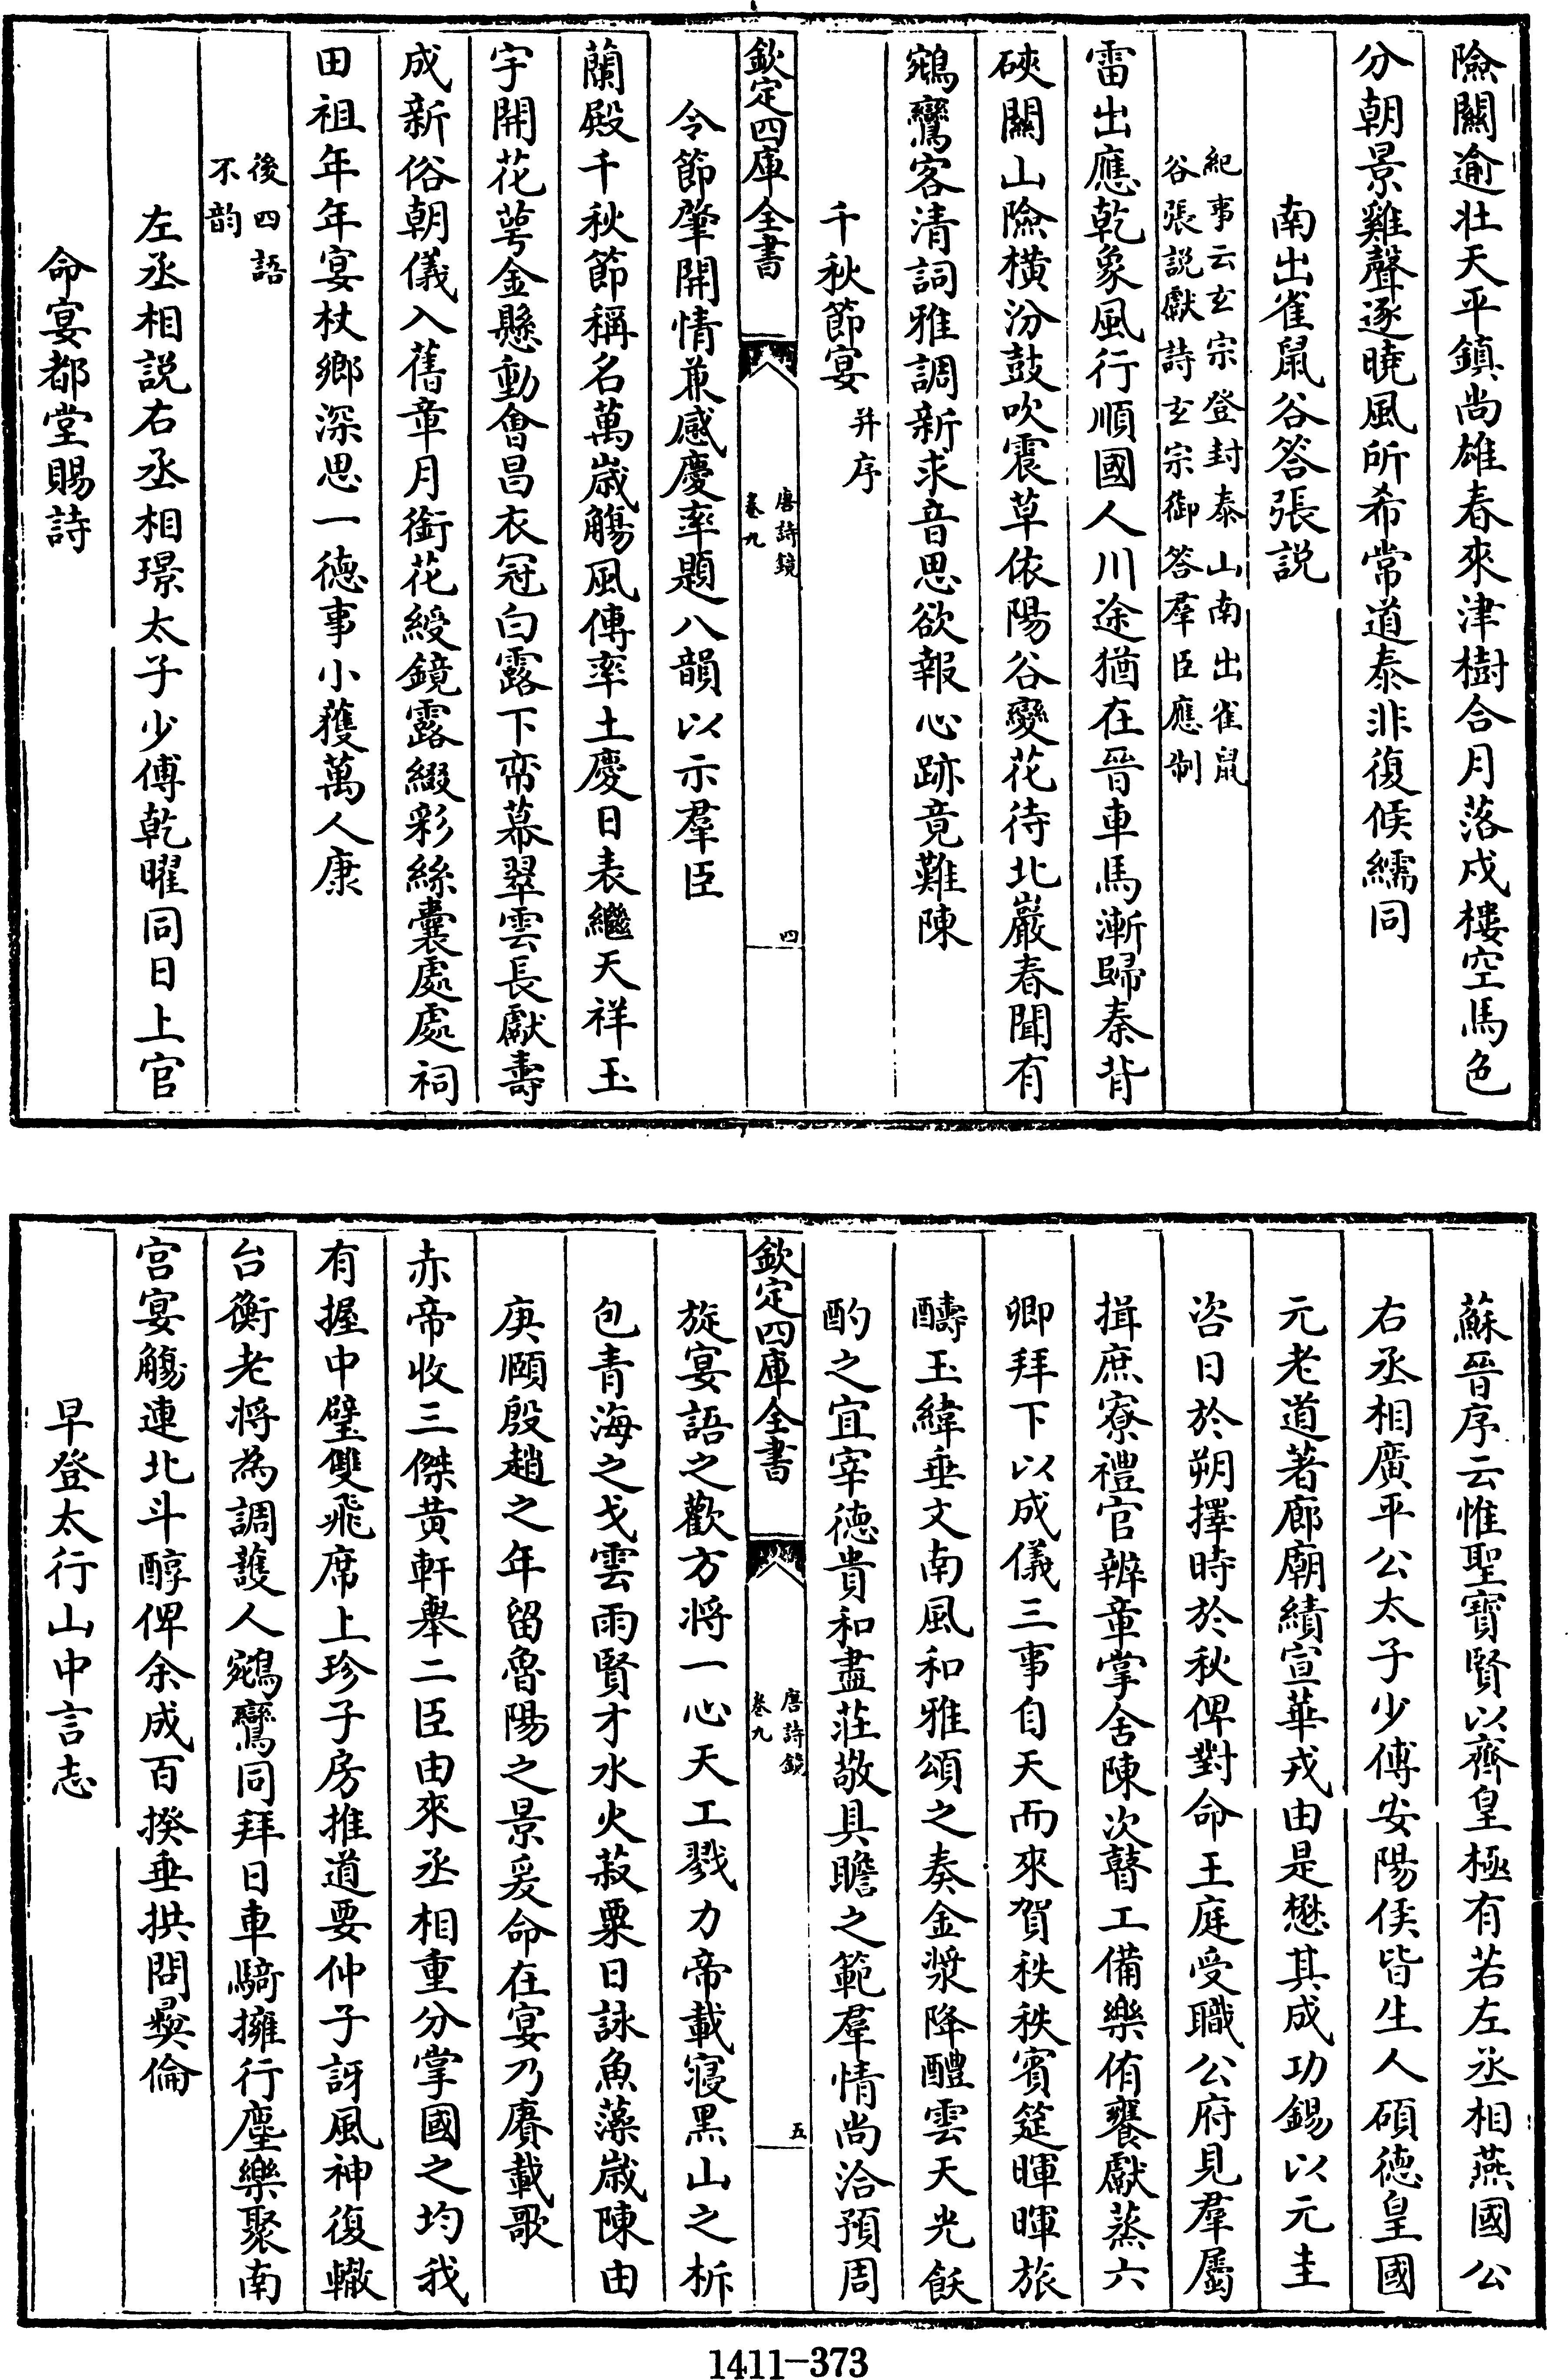 險關逾壯天平鎮尚雄春來津樹合月落戍樓空馬色
分朝景雞聲逐曉風所希常道泰非復候繻同
南出雀鼠谷答張説
紀事云玄宗登封泰山南出雀鼠
谷張説獻詩玄宗御答羣臣應制
雷出應乾象風行順國人川途猶在晉車馬漸歸秦背
硤關山險橫汾鼓吹震草依陽谷變花待北巖春聞有
鵷鸞客清詞雅調新求音思欲報心跡竟難陳
千秋節宴并序
欽定四庫全書
唐詩鏡
卷九
四
令節肇開情兼感慶率題八韻以示羣臣
蘭殿千秋節稱名萬歲觴風傳率土慶日表繼天祥玉
宇開花萼金懸動㑹昌衣冠白露下帟幕翠雲長獻壽
成新俗朝儀入舊章月銜花綬鏡露綴彩絲囊處處祠
田祖年年宴杖鄉深思一德事小獲萬人康
後四語
不韵
左丞相説右丞相璟太子少傅乾曜同日上官
命宴都堂賜詩
蘇晉序云惟聖寳賢以齊皇極有若左丞相燕國公
右丞相廣平公太子少傅安陽侯皆生人碩德皇國
元老道著廊廟績宣華戎由是懋其成功錫以元圭
咨日於朔擇時於秋俾對命王庭受職公府見羣屬
揖庶寮禮官辨章掌舍陳次瞽工備樂侑饔獻蒸六
卿拜下以成儀三事自天而來賀秩秩賓筵暉暉旅
醻玉緯垂文南風和雅頌之奏金漿降醴雲天光飫
酌之宜宰德貴和盡莊敬具瞻之範羣情尚洽預周
欽定四庫全書
唐詩鏡
卷九
五
旋宴語之歡方将一心天工戮力帝載寢黑山之柝
包青海之戈雲雨賢才水火菽粟日詠魚藻歲陳由
庚頤殷趙之年留魯陽之景爰命在宴乃賡載歌
赤帝收三傑黄軒舉二臣由來丞相重分掌國之均我
有握中璧雙飛席上珍子房推道要仲子訝風神復轍
台衡老将為調護人鵷鸞同拜日車騎擁行塵樂聚南
宫宴觴連北斗醇俾余成百揆垂拱問彛倫
早登太行山中言志
1411-373